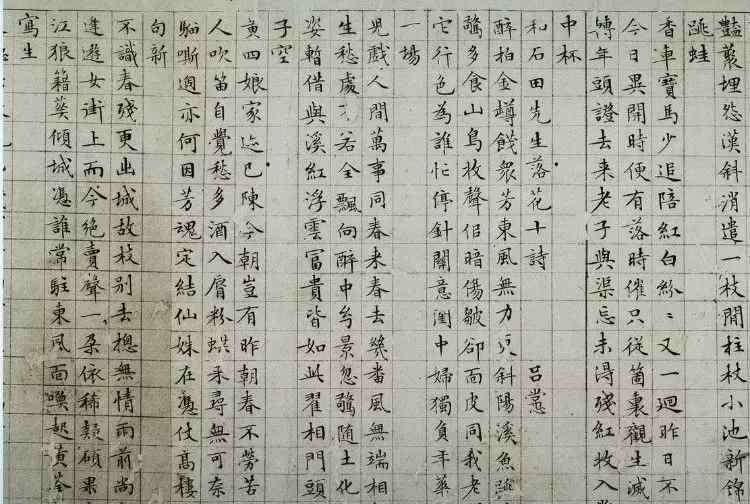 豔裏埋怨漢斜消遣一枝閒拄杖小池新
跳蛙
香車寶馬少追陪紅白紛〻又一迴昨日不
今日異開時便有落時催只從箇裏觀生滅
轉年頭證去来老子與渠忘未得殘紅收入
中杯
和石田先生落花十詩 呂㦂
醉拍金罇餞衆芳東風無力斜陽溪魚
驚多食山鳥收聲侶暗傷皺卻面皮同我老
它行色為誰忙停針闗意閨中婦獨負年華
一場
児戲人間萬事同春来春去幾番風無端相
生愁處若全飄向醉中兮景忽驚随土化
姿暫借與溪紅浮雲冨貴皆如此翟相門頭
子空
黄四娘家迹已陳今朝豈有昨朝春不勞苦
人吹笛自覺愁多酒入唇粉蜨来尋無可奈
騮嘶過亦何因芳魂定結仙姝在慿仗髙樓
句新
不識春殘更出城故枝别去揔無情雨前尚
逢遊女街上而今絶賣聲一朶依稀類碩果
江狼籍葬傾城憑誰常駐東風面喚起黄荃
寫生